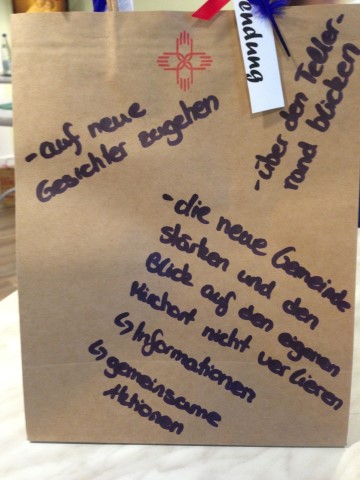 endung
- auf neue
Gesichter zugehen
- über den Teller-
rand blicken
- die neue Gemeinde
stärken und den
Blick auf den eigenen
Kirchort nicht verlieren
↳ Informationen
↳ gemeinsame
Aktionen